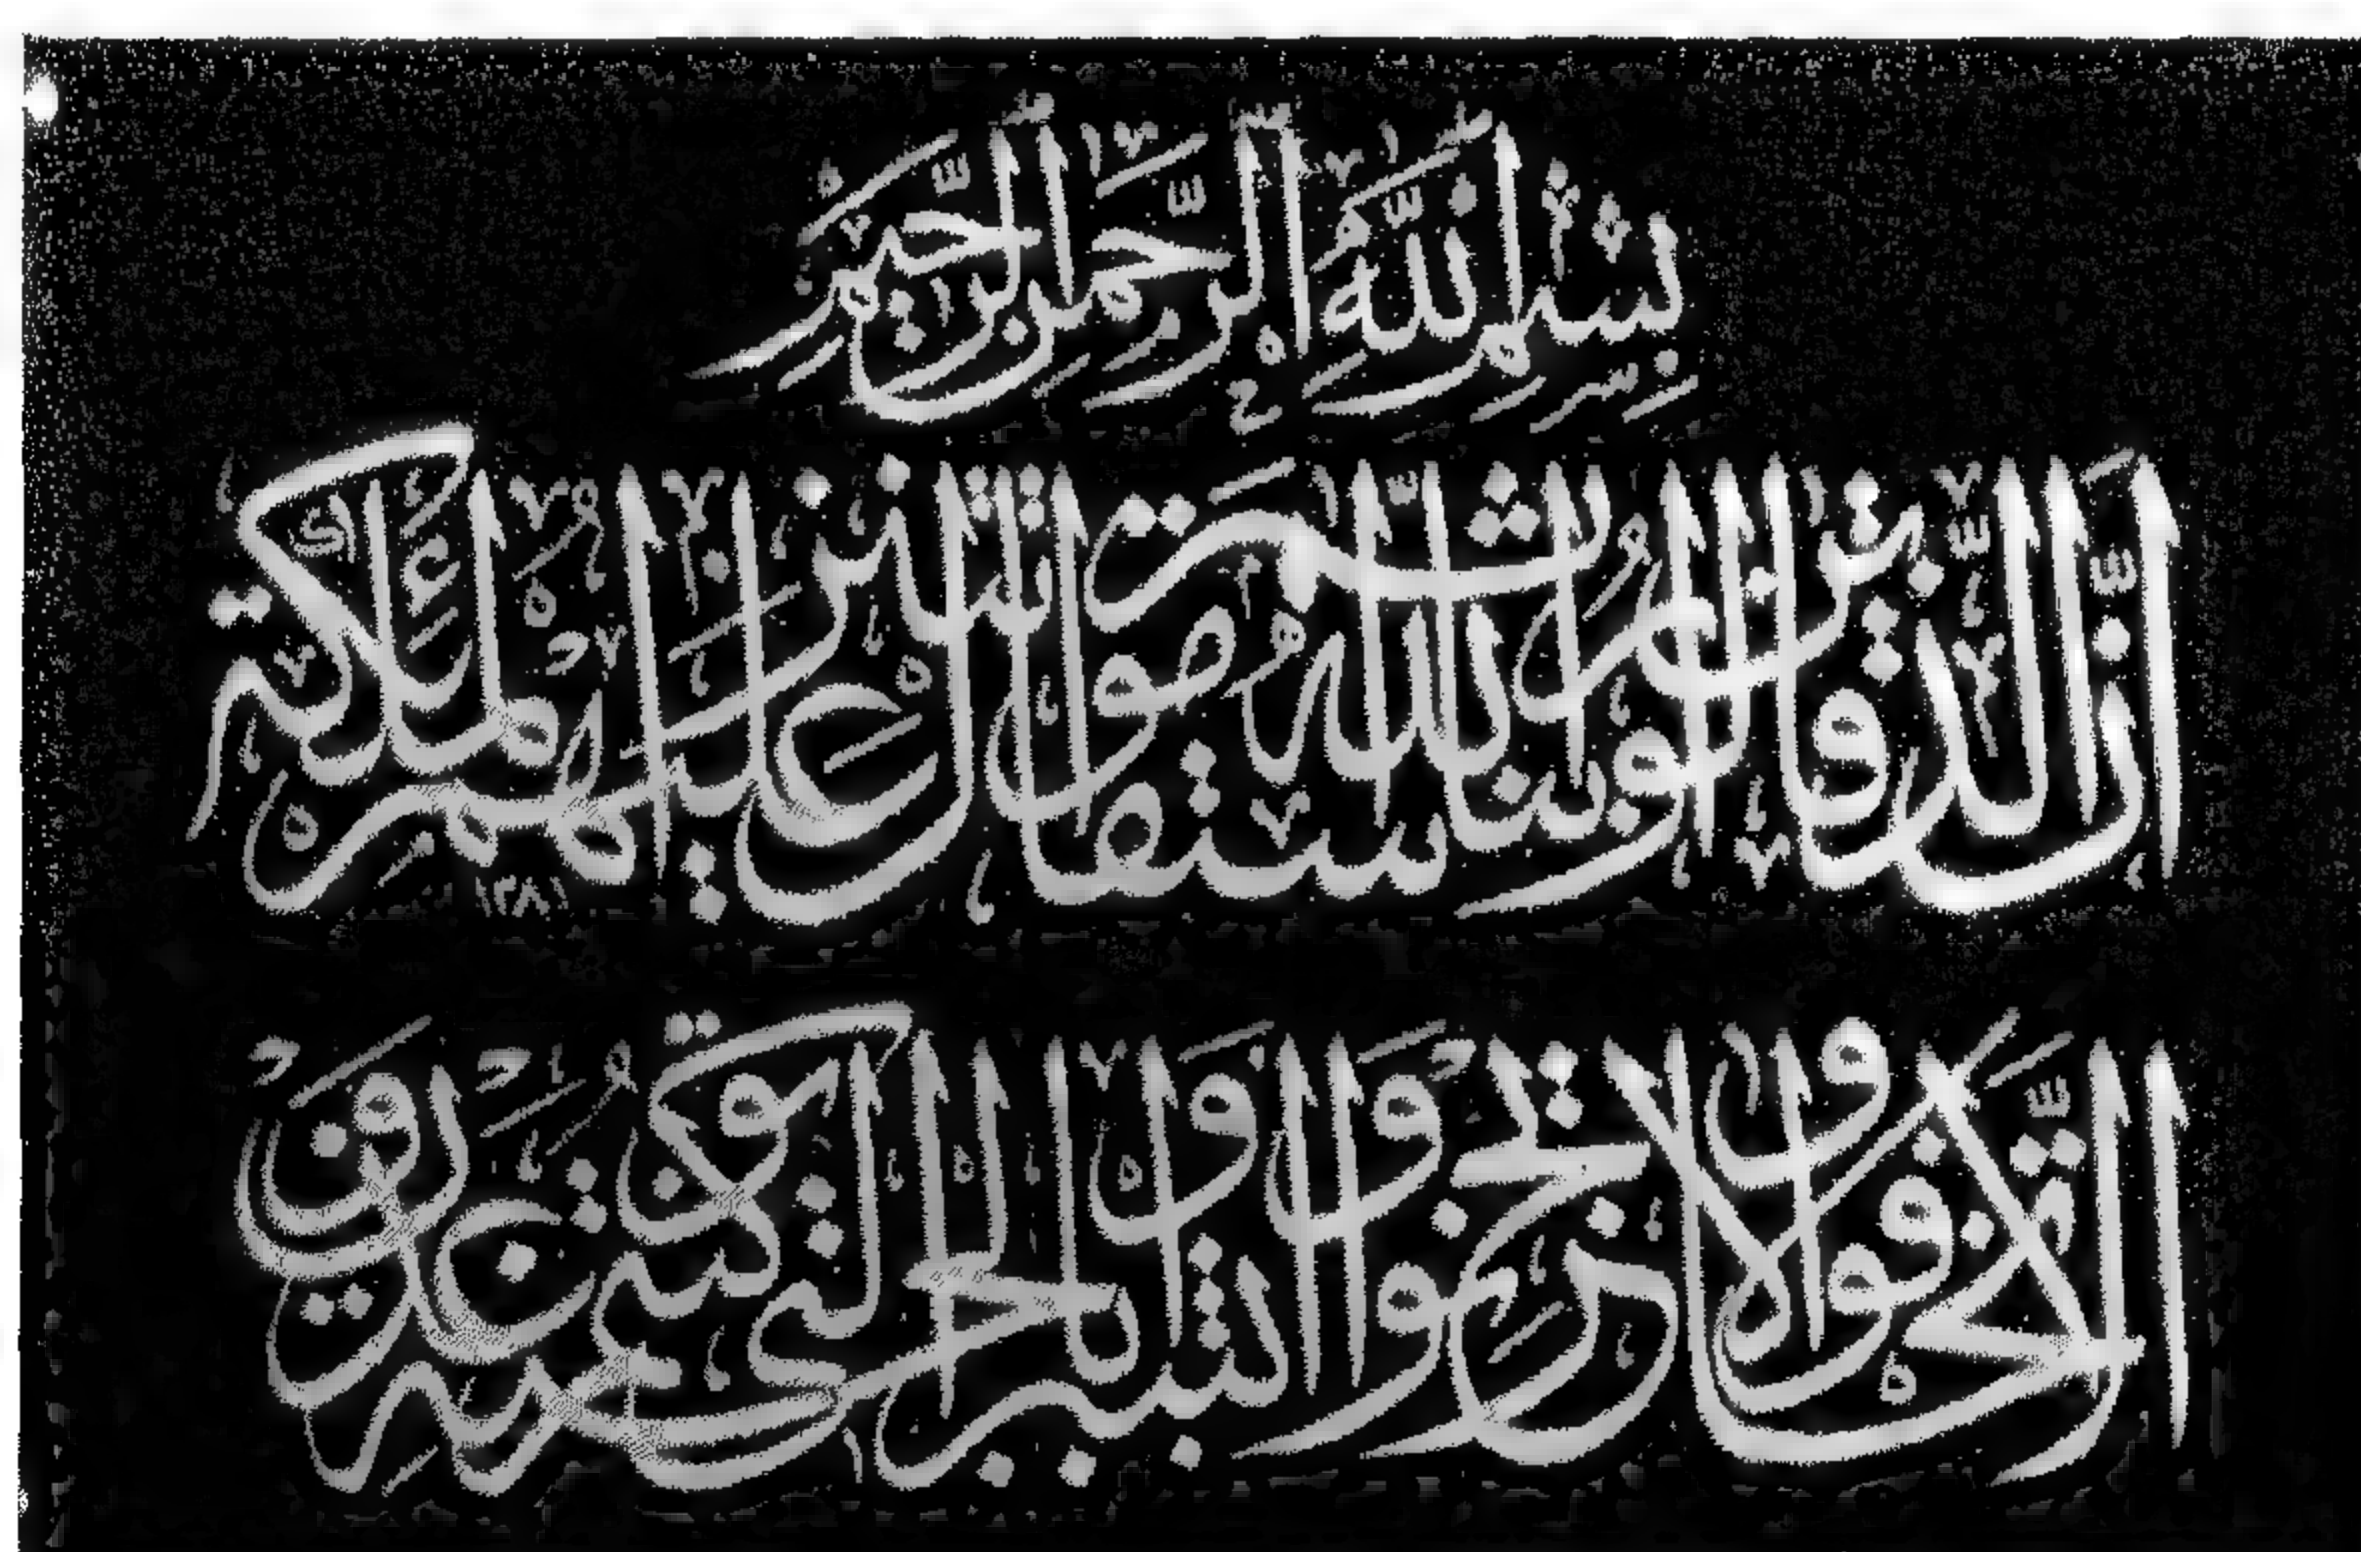 بسم الله الرحمن الرحيم
ان الذين قالوا ربنا الله ثم استقاموا تتنزل عليهم الملئكة
الا تخافوا ولا تحزنوا وابشروا بالجنة التي كنتم توعدون
١٢٨١